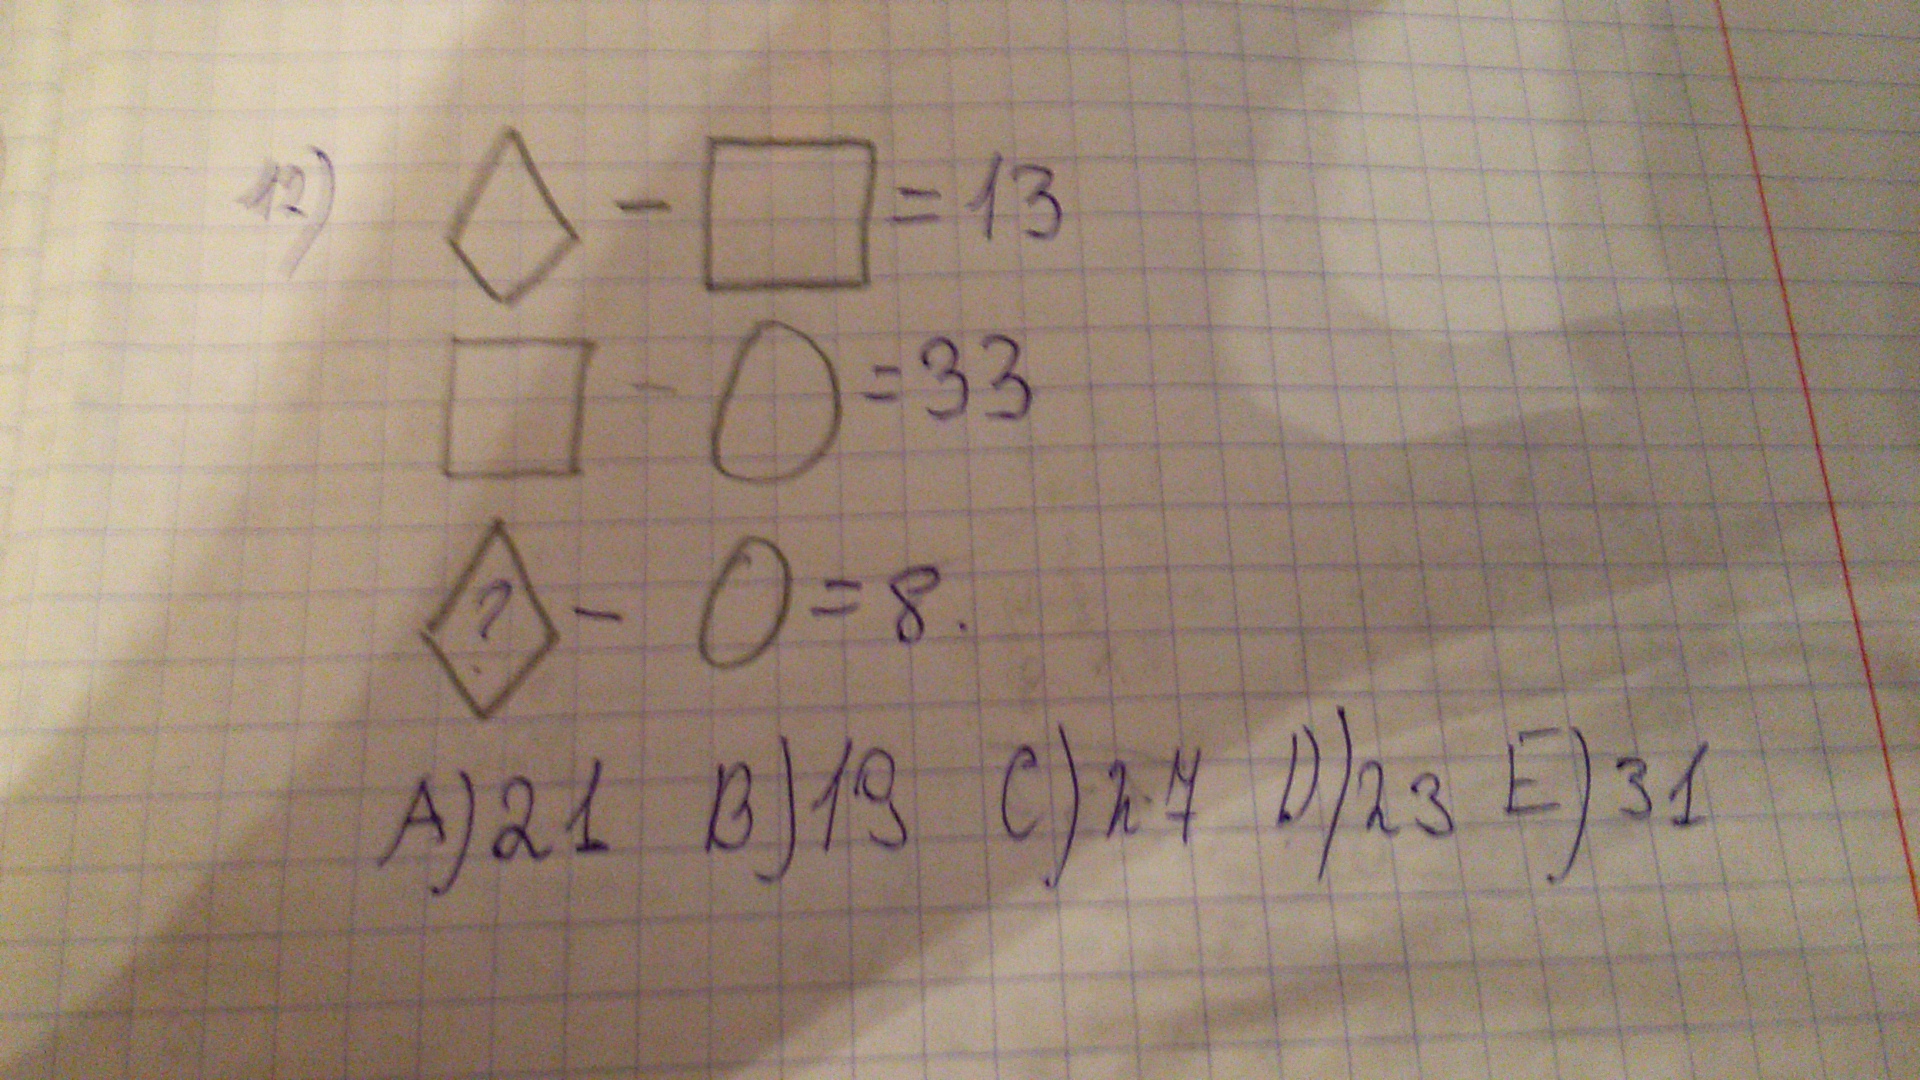 12) ◇ - □ = 13
□ - ○ = 33
? - ○ = 8.
A) 21 B) 19 C) 27 D) 23 E) 31